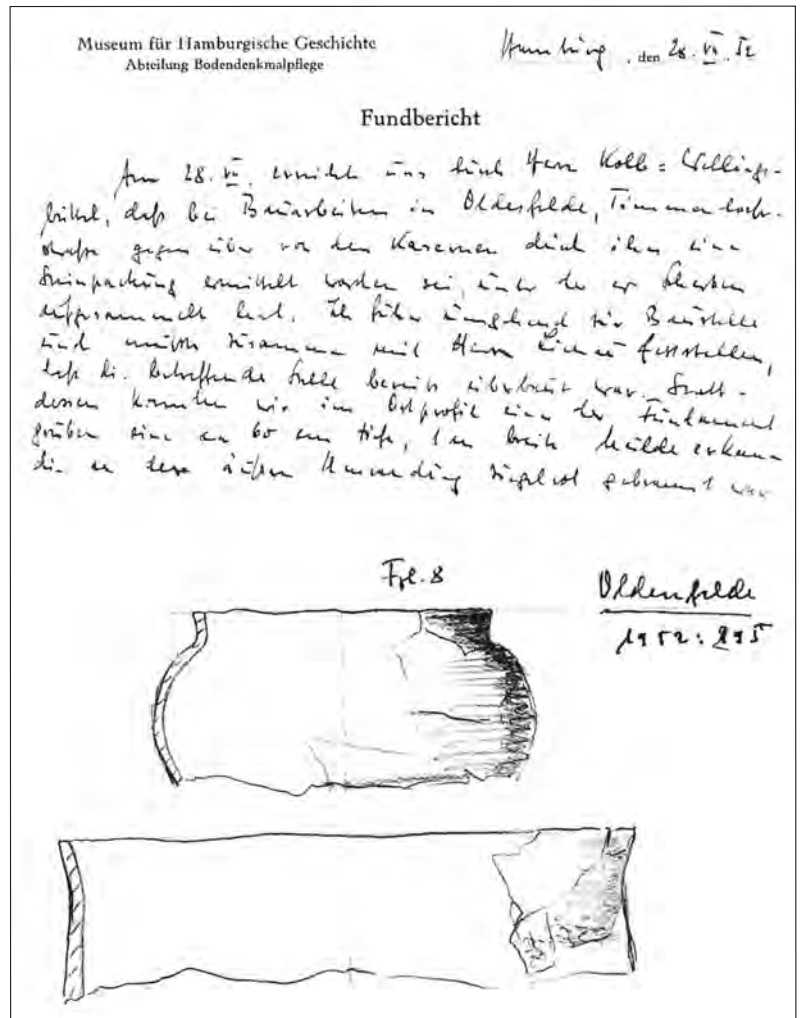 Museum für Hamburgische Geschichte
Abteilung Bodendenkmalpflege
Hamburg, den 28. VII. 52
Fundbericht
Am 28. VII. erreicht uns durch Herrn Kolbe =
daß bei Bauarbeiten in Oldesfelde, Timmendorfer-
straße gegenüber von den Kasernen durch ihn eine
Steinpackung ermittelt worden sei, unter der er Scherben
aufgesammelt hat. Ich fuhr umgehend zur Baustelle
und mußte zusammen mit Herrn feststellen,
daß die betreffende Stelle bereits überbaut war. Statt-
dessen konnten wir im Ostprofil einer der Fundament
gruben eine ca 60 cm tiefe, 1 m breite Mulde erkennen
die an ihrer äußeren Umrandung ziegelrot gebrannt war
Fpl. 8
Oldenfelde
1952: 295